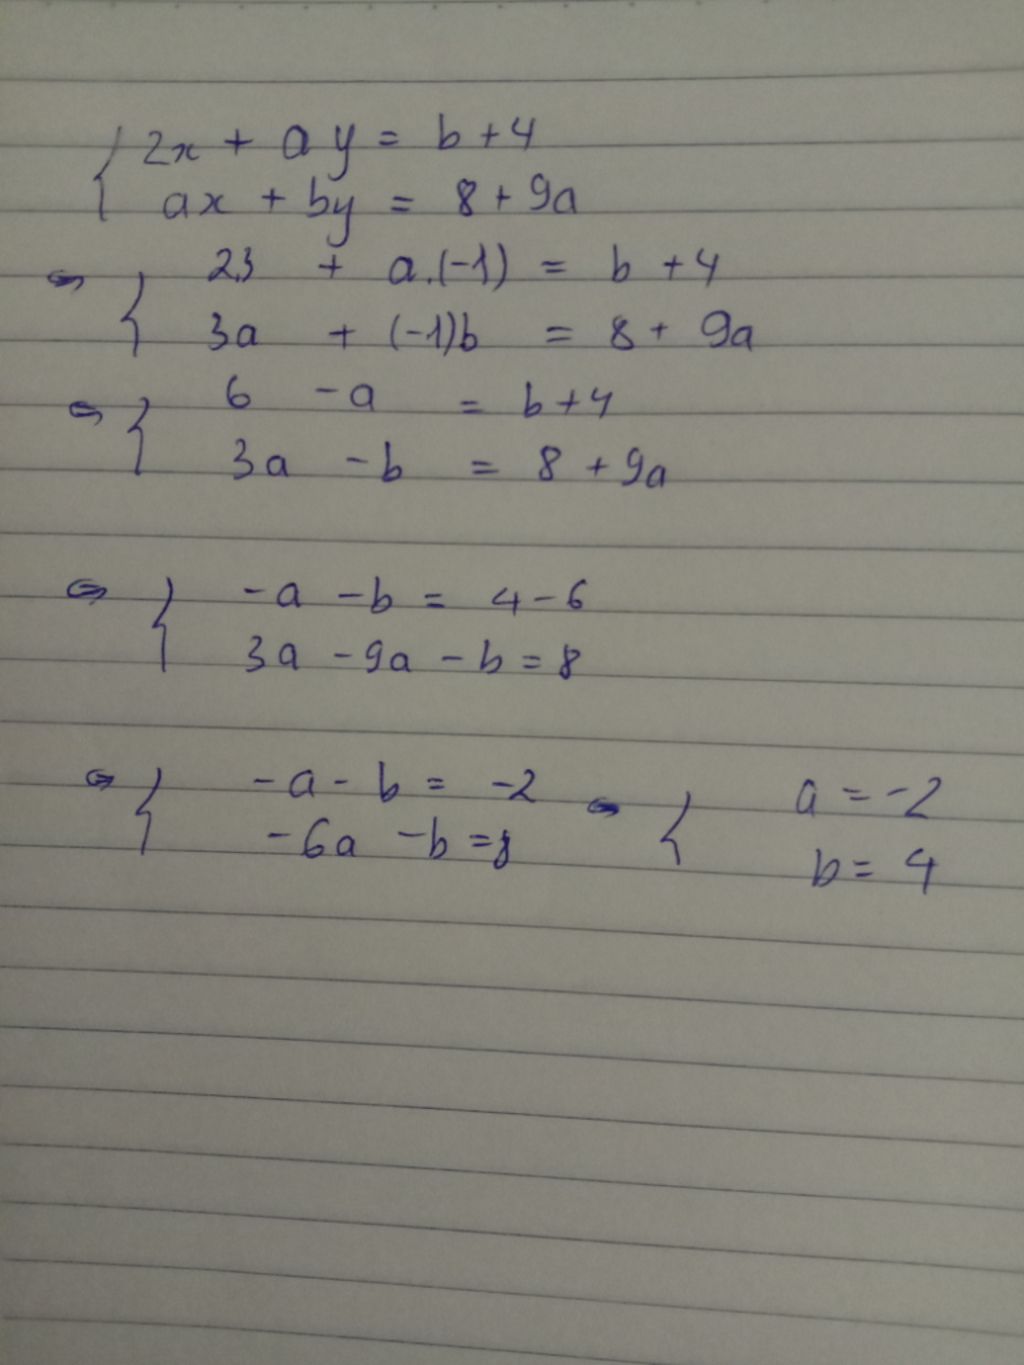 { 2x + ay = b + 4
ax + by = 8 + 9a
⇔ { 2.3 + a.(-1) = b + 4
3a + (-1)b = 8 + 9a
⇔ { 6 - a = b + 4
3a - b = 8 + 9a
⇔ { -a - b = 4 - 6
3a - 9a - b = 8
⇔ { -a - b = -2 ⇔ { a = -2
-6a - b = 8 b = 4